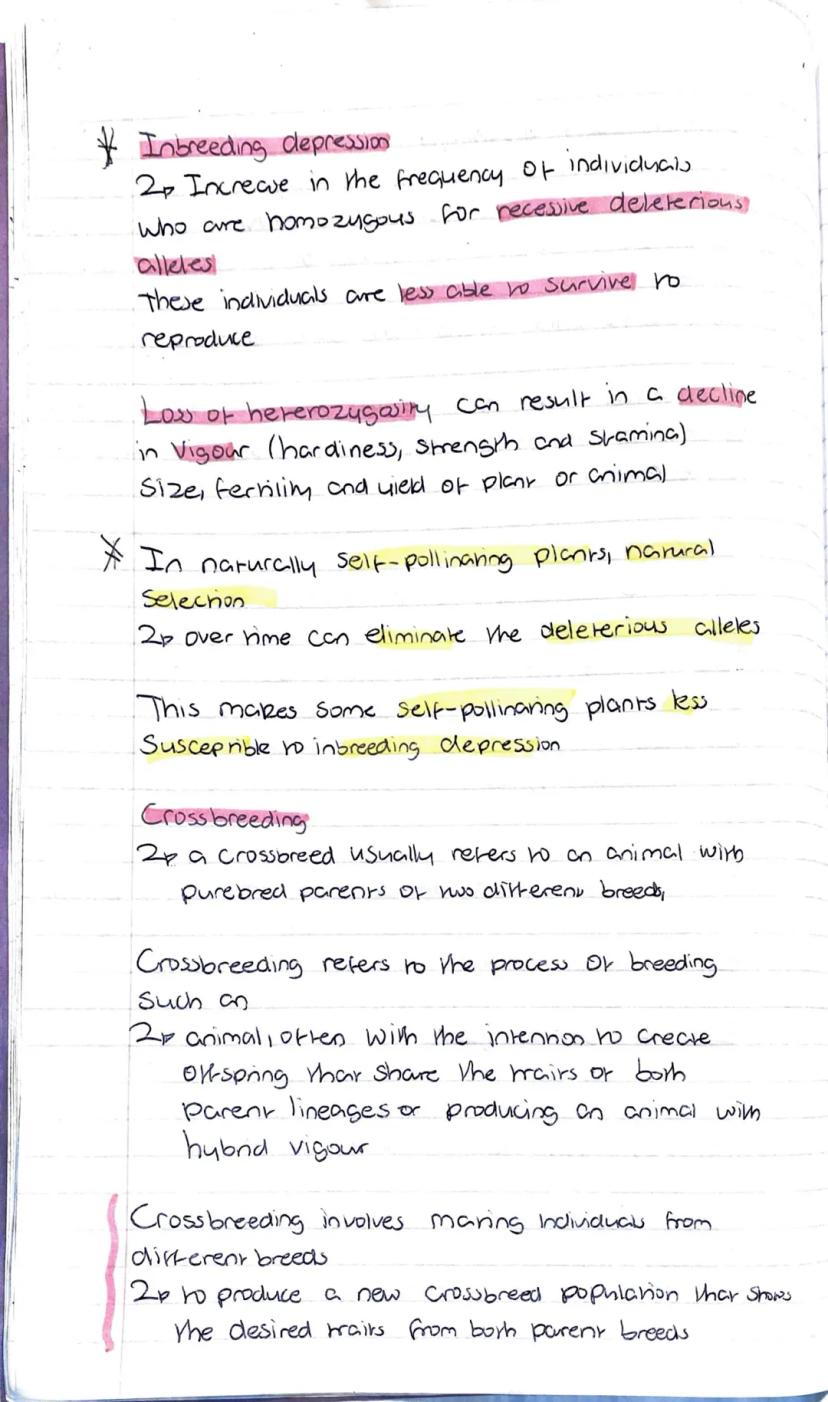 Inbreeding depression
↳ Increase in the frequency of individuals
who are homozygous for recessive deleterious
alleles
These individuals are less able to survive to
reproduce
Loss of heterozygosity can result in a decline
in vigour (hardiness, strength and stamina)
size, fertility and yield of plant or animal
In naturally self-pollinating plants, natural
selection
↳ over time can eliminate the deleterious alleles
This makes some self-pollinating plants less
susceptible to inbreeding depression
Crossbreeding
↳ a crossbreed usually refers to an animal with
purebred parents of two different breeds,
Crossbreeding refers to the process of breeding
such an
↳ animal, often with the intention to create
offspring that share the traits of both
parent lineages or producing an animal with
hybrid vigour
Crossbreeding involves mating individuals from
different breeds
↳ to produce a new crossbreed population that shows
the desired traits from both parent breeds